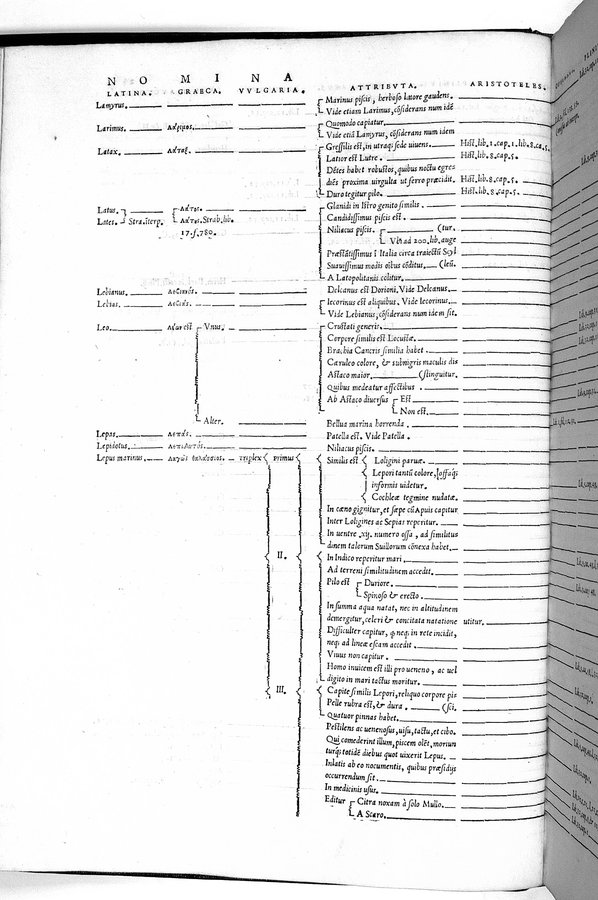 NOMINA
LATINA. GRAECA. VVLGARIA. ATTRIBVTA. ARISTOTELES.
Lamyrus. Marinus piscis, herboso litore gaudens.
Vide etiam Larimus, cōsiderans num idē
Larimus. Λάριμος. Quomodo capiatur.
Vide etiā Lamyrus, cōsiderans num idem
Latax. Λάταξ. Gressilis est, in utraq; sede uiuens. Hist. lib. 1. cap. 1. lib. 8. ca. 5.
Latior est Lutre. Hist. lib. 8. cap. 5.
Dētes habet robustos, quibus noctu egres
diēs proxima uirgulta ut ferro præcidit. Hist. lib. 8. cap. 5.
Duro tegitur pilo. Hist. lib. 8. cap. 5.
Latus. Λάτος. Glanidi in Istro genito similis.
Lates. Stra. iterp. Λάτος. Strab. lib. Candidissimus piscis est.
17. f. 780. Niliacus piscis. (tur.
Vsq; ad 200. lib. auge
Præstātissimus ī Italia circa traiectū Scyl
Suauissimus modis oībus cōditus. (leū.
A Latopolitanis colitur.
Lebianus. Delcanus est Dorioni. Vide Delcanus.
Lebias. Λεβίας. Iecorinus est aliquibus. Vide Iecorinus.
Vide Lebianus, cōsiderans num idem sit.
Leo. Λέων est Vnus. Crustati generis.
Corpore similis est Locustæ.
Brachia Cancris similia habet.
Cæruleo colore, & subnigris maculis dis
Astaco maior. (stinguitur.
Quibus medeatur affectibus.
Ab Astaco diuersus Est
Non est.
Alter. Bellua marina horrenda.
Lepas. Λεπάς. Patella est. Vide Patella.
Lepidotus. Λεπιδωτός. Niliacus piscis.
Lepus marinus. Λαγὼς θαλάσσιος. triplex primus Similis est Loligini paruæ.
Lepori tantū colore, [offaq;
informis uidetur.
Cochleæ tegmine nudatæ.
In cæno gignitur, et sæpe cū Apuis capitur
Inter Loligines ac Sepias reperitur.
In uentre .xij. numero ossa, ad similitus
dinem talorum Suillorum cōnexa habet.
II. In Indico reperitur mari.
Ad terreni similitudinem accedit.
Pilo est Duriore.
Spinoso & erecto.
In summa aqua natat, nec in altitudinem
demergitur, celeri & concitata natatione utitur.
Difficulter capitur, q; neq; in rete incidit,
neq; ad lineæ escam accedit.
Viuus non capitur.
Homo inuicem est illi pro ueneno, ac uel
digito in mari tactus moritur.
III. Capite similis Lepori, reliquo corpore pis
Pelle rubra est, & dura. (sci.
Quatuor pinnas habet.
Pestilens ac uenenosus, uisu, tactu, et cibo.
Qui comederint illum, piscem olēt, moriun
turq; totidē diebus quot uixerit Lepus.
Inlatis ab eo nocumentis, quibus præsidijs
occurrendum sit.
In medicinis usus.
Editur Citra noxam à solo Mullo.
A Scaro.